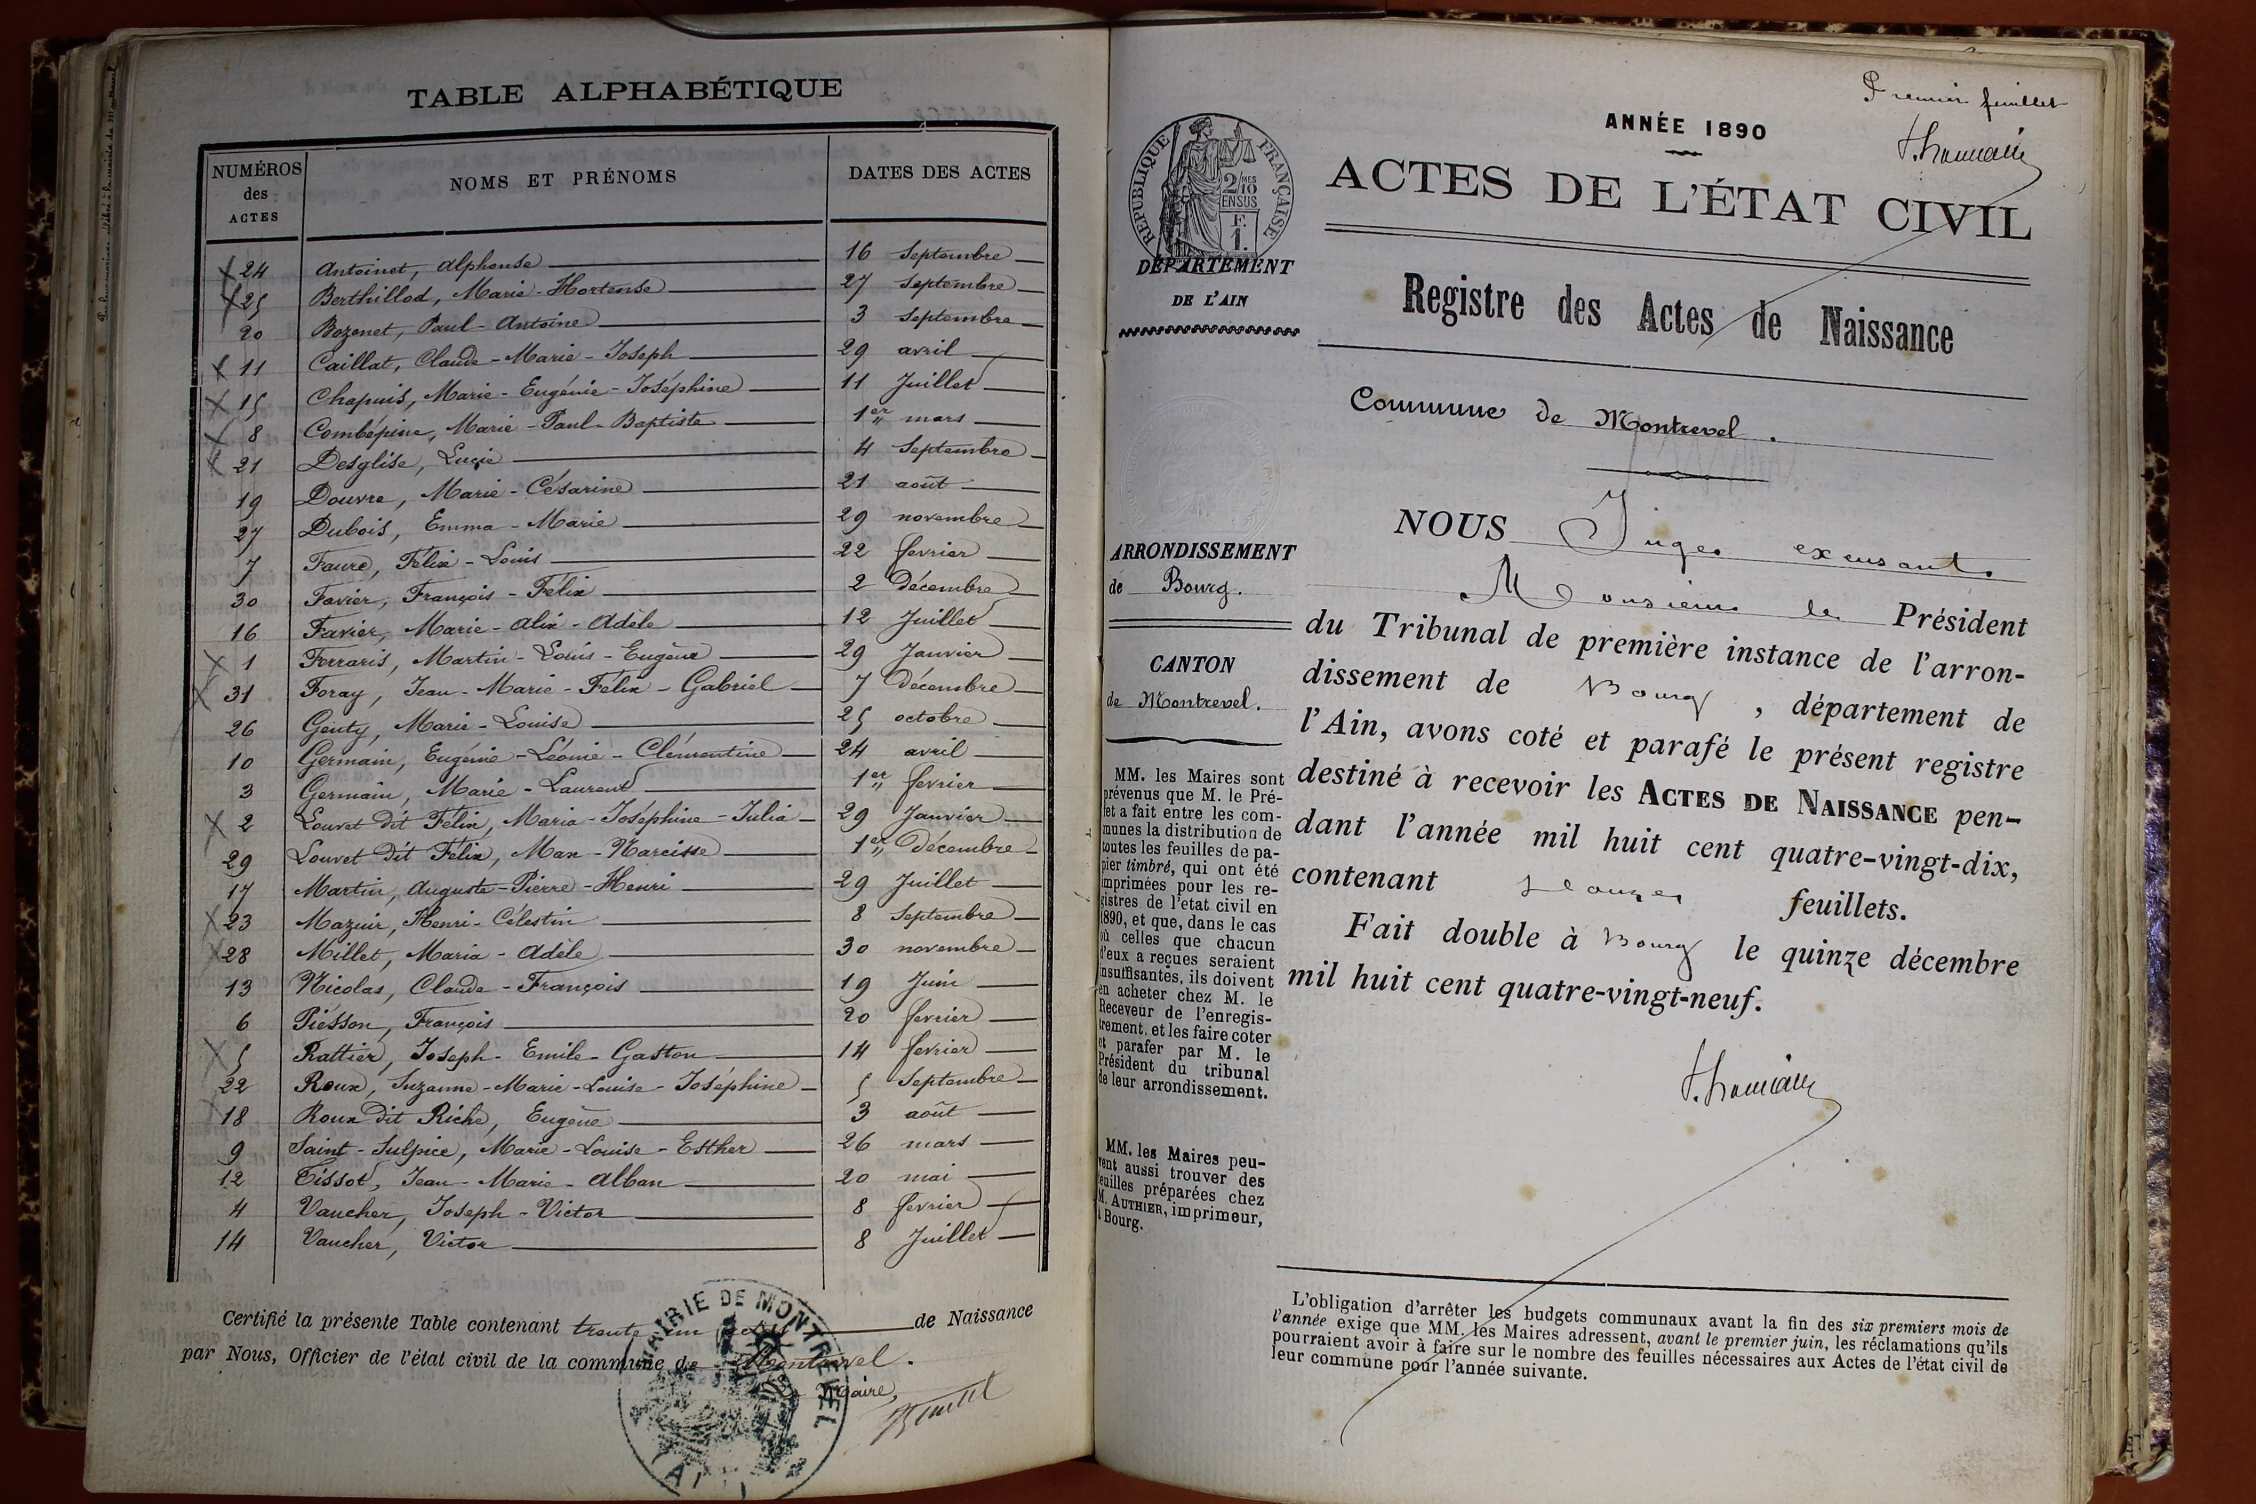 TABLE ALPHABÉTIQUE
NUMÉROS
des
ACTES
NOMS ET PRÉNOMS
DATES DES ACTES
24 Antoinet, Alphonse 16 Septembre
25 Berthillod, Marie-Hortense 27 Septembre
20 Bozonet, Paul-Antoine 3 Septembre
11 Caillat, Claude-Marie-Joseph 29 avril
15 Chapuis, Marie-Eugénie-Joséphine 11 Juillet
8 Combépine, Marie-Paul-Baptiste 1er mars
21 Desglise, Lucie 4 Septembre
19 Douvre, Marie-Césarine 21 août
27 Dubois, Emma-Marie 29 novembre
7 Faure, Félix-Louis 22 fevrier
30 Favier, François-Félix 2 Décembre
16 Favier, Marie-Alix-Adèle 12 Juillet
1 Ferraris, Martin-Louis-Eugène 29 Janvier
31 Foray, Jean-Marie-Félix-Gabriel 7 décembre
26 Genty, Marie-Louise 25 octobre
10 Germain, Eugénie-Léonie-Clémentine 24 avril
3 Germain, Marie-Laurent 1er fevrier
2 Louvet dit Félix, Maria-Joséphine-Julia 29 Janvier
29 Louvet dit Félix, Max-Narcisse 1er Décembre
17 Martin, Auguste-Pierre-Henri 29 Juillet
23 Mazuir, Henri-Célestin 8 Septembre
28 Millet, Maria-Adèle 30 novembre
13 Nicolas, Claude-François 19 Juin
6 Piesson, François 20 fevrier
5 Rattier, Joseph-Emile-Gaston 14 fevrier
22 Roux, Suzanne-Marie-Louise-Joséphine 5 Septembre
18 Roux dit Riche, Eugène 3 août
9 Saint-Sulpice, Marie-Louise-Esther 26 mars
12 Tissot, Jean-Marie-Alban 20 mai
4 Vaucher, Joseph-Victor 8 fevrier
14 Vaucher, Victor 8 Juillet
Certifié la présente Table contenant trente un actes de Naissance
par Nous, Officier de l'état civil de la commune de Montrevel.
Maire,
MAIRIE DE MONTREVEL
(AIN)
Premier feuillet
ANNÉE 1890
ACTES DE L'ÉTAT CIVIL
RÉPUBLIQUE FRANÇAISE
2/10 MES
EN SUS
F.
1.
DÉPARTEMENT
DE L'AIN
Registre des Actes de Naissance
Commune de Montrevel.
ARRONDISSEMENT
de Bourg.
CANTON
de Montrevel.
MM. les Maires sont
prévenus que M. le Pré-
fet a fait entre les com-
munes la distribution de
toutes les feuilles de pa-
pier timbré, qui ont été
imprimées pour les re-
gistres de l'état civil en
1890, et que, dans le cas
où celles que chacun
d'eux a reçues seraient
insuffisantes, ils doivent
en acheter chez M. le
Receveur de l'enregis-
trement, et les faire coter
et parafer par M. le
Président du tribunal
de leur arrondissement.
MM. les Maires peu-
vent aussi trouver des
feuilles préparées chez
M. AUTHIER, imprimeur,
à Bourg.
NOUS Juge excusant
Monsieur le Président
du Tribunal de première instance de l'arron-
dissement de Bourg, département de
l'Ain, avons coté et parafé le présent registre
destiné à recevoir les ACTES DE NAISSANCE pen-
dant l'année mil huit cent quatre-vingt-dix,
contenant feuillets.
Fait double à Bourg le quinze décembre
mil huit cent quatre-vingt-neuf.
L'obligation d'arrêter les budgets communaux avant la fin des six premiers mois de
l'année exige que MM. les Maires adressent, avant le premier juin, les réclamations qu'ils
pourraient avoir à faire sur le nombre des feuilles nécessaires aux Actes de l'état civil de
leur commune pour l'année suivante.